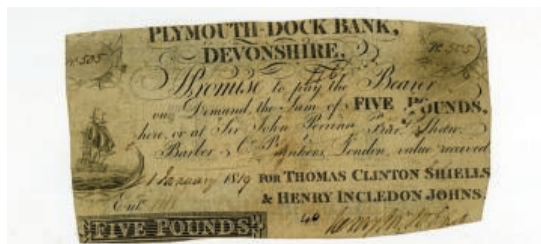 PLYMOUTH-DOCK BANK,
DEVONSHIRE.
No 505
No 505
I Promise to pay the Bearer
on Demand, the Sum of FIVE POUNDS,
here, or at Sir John Perring Bart. Shaw
Barber & Co. Bankers, London, value received
1 January 1819 FOR THOMAS CLINTON SHIELLS
& HENRY INCLEDON JOHNS
Entd
FIVE POUNDS